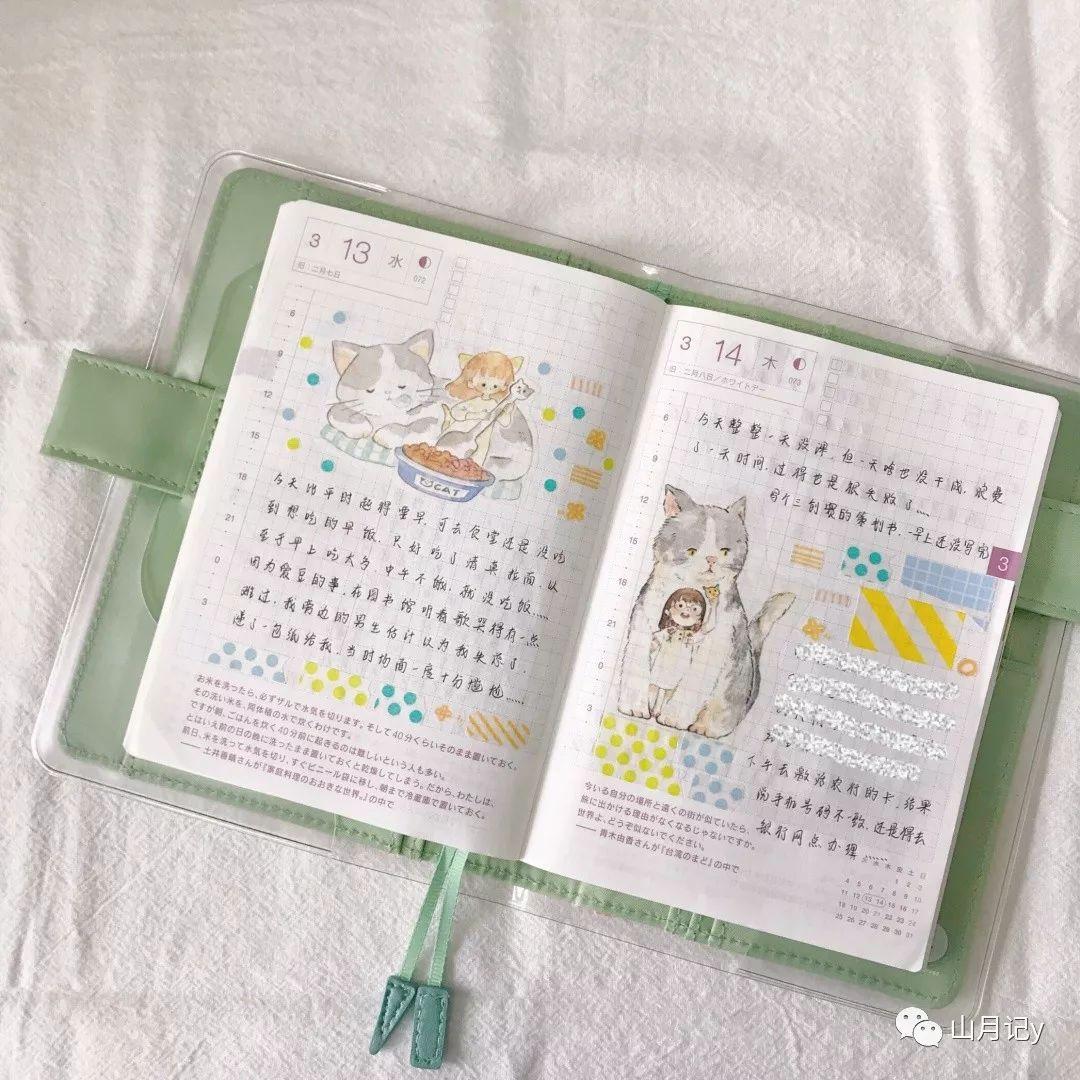 3 13 水
072
旧 二月七日
6
9
12
15
18
21
0
3
CAT
今天比平时起得要早,可去食堂还是没吃
到想吃的早饭,只好吃了清真拉面,以
至于早上吃太多,中午不饿,就没吃饭……
因为爱豆的事,在图书馆听着歌哭得有一点
难过,我旁边的男生估计以为我失恋了,
递了一包纸给我,当时场面一度十分尴尬……
お米を洗ったら、必ずザルで水気を切ります。そして40分くらいそのまま置いておく。
その洗い米を、同体積の水で炊くわけです。
ですが朝、ごはんを炊く40分前に起きるのは難しいという人も多い。
とはいえ前の日の晩に洗ったまま置いておくと乾燥してしまう。だから、わたしは、
前日、米を洗って水気を切り、すぐビニール袋に移し、朝まで冷蔵庫で置いておく。
——土井善晴さんが『家庭料理のおおきな世界。』の中で
3 14 木
073
旧 二月八日/ホワイトデー
6
9
12
15
18
21
0
3
今天整整一天没课,但一天啥也没干成,浪费
了一天时间,过得也是很失败了……
写个三创赛的策划书,一早上还没写完
3
下午去激活农行的卡,结果
说手机号码不一致,还是得去
银行网点办理……
今いる自分の場所と遠くの街が似ていたら、
旅に出かける理由がなくなるじゃないですか。
世界よ、どうぞ似ないでください。
——青木由香さんが『台湾のまど』の中で
月 火 水 木 金 土 日
1 2 3
4 5 6 7 8 9 10
11 12 13 14 15 16 17
18 19 20 21 22 23 24
25 26 27 28 29 30 31
山月记y